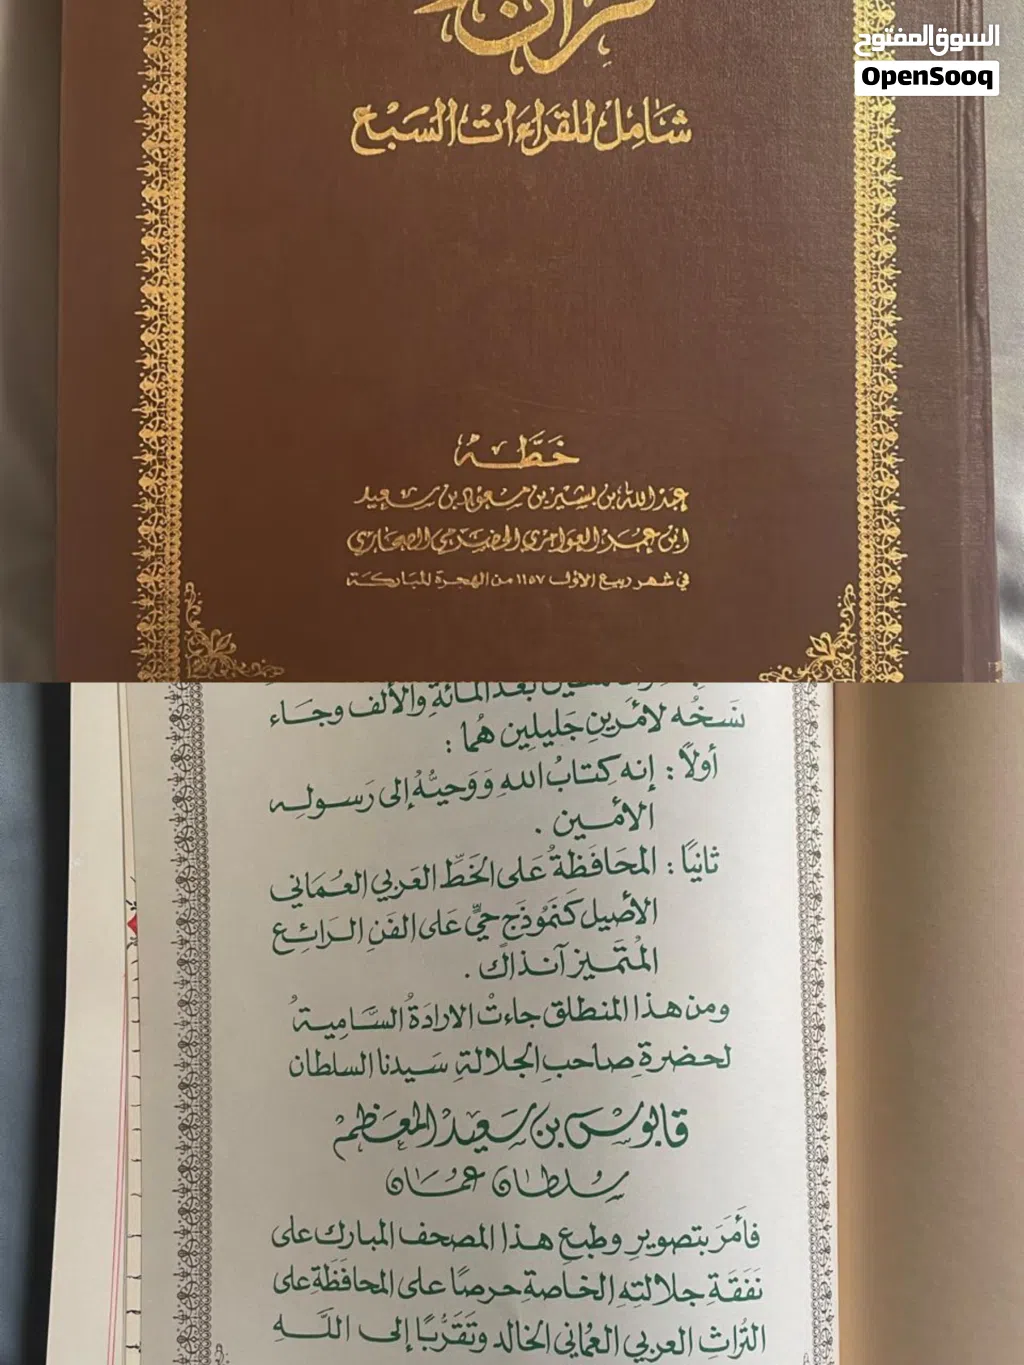 السوق المفتوح
OpenSooq
قرآن
شامل للقراءات السبع
خطه
عبدالله بن بشير بن مسعود بن سعيد
ابن عمر العوامري الحضرمي الصحاري
في شهر ربيع الأول ١١٥٧ من الهجرة المباركة
بعد المائة والألف وجاء
نسخه لأمرين جليلين هما :
أولاً : إنه كتاب الله ووحيه إلى رسوله
الأمين .
ثانيًا : المحافظة على الخط العربي العماني
الأصيل كنموذج حيّ على الفن الرائع
المتميز آنذاك .
ومن هذا المنطلق جاءت الارادة السامية
لحضرة صاحب الجلالة سيدنا السلطان
قابوس بن سعيد المعظم
سلطان عمان
فأمر بتصوير وطبع هذا المصحف المبارك على
نفقة جلالته الخاصة حرصًا على المحافظة على
التراث العربي العماني الخالد وتقربًا إلى الله